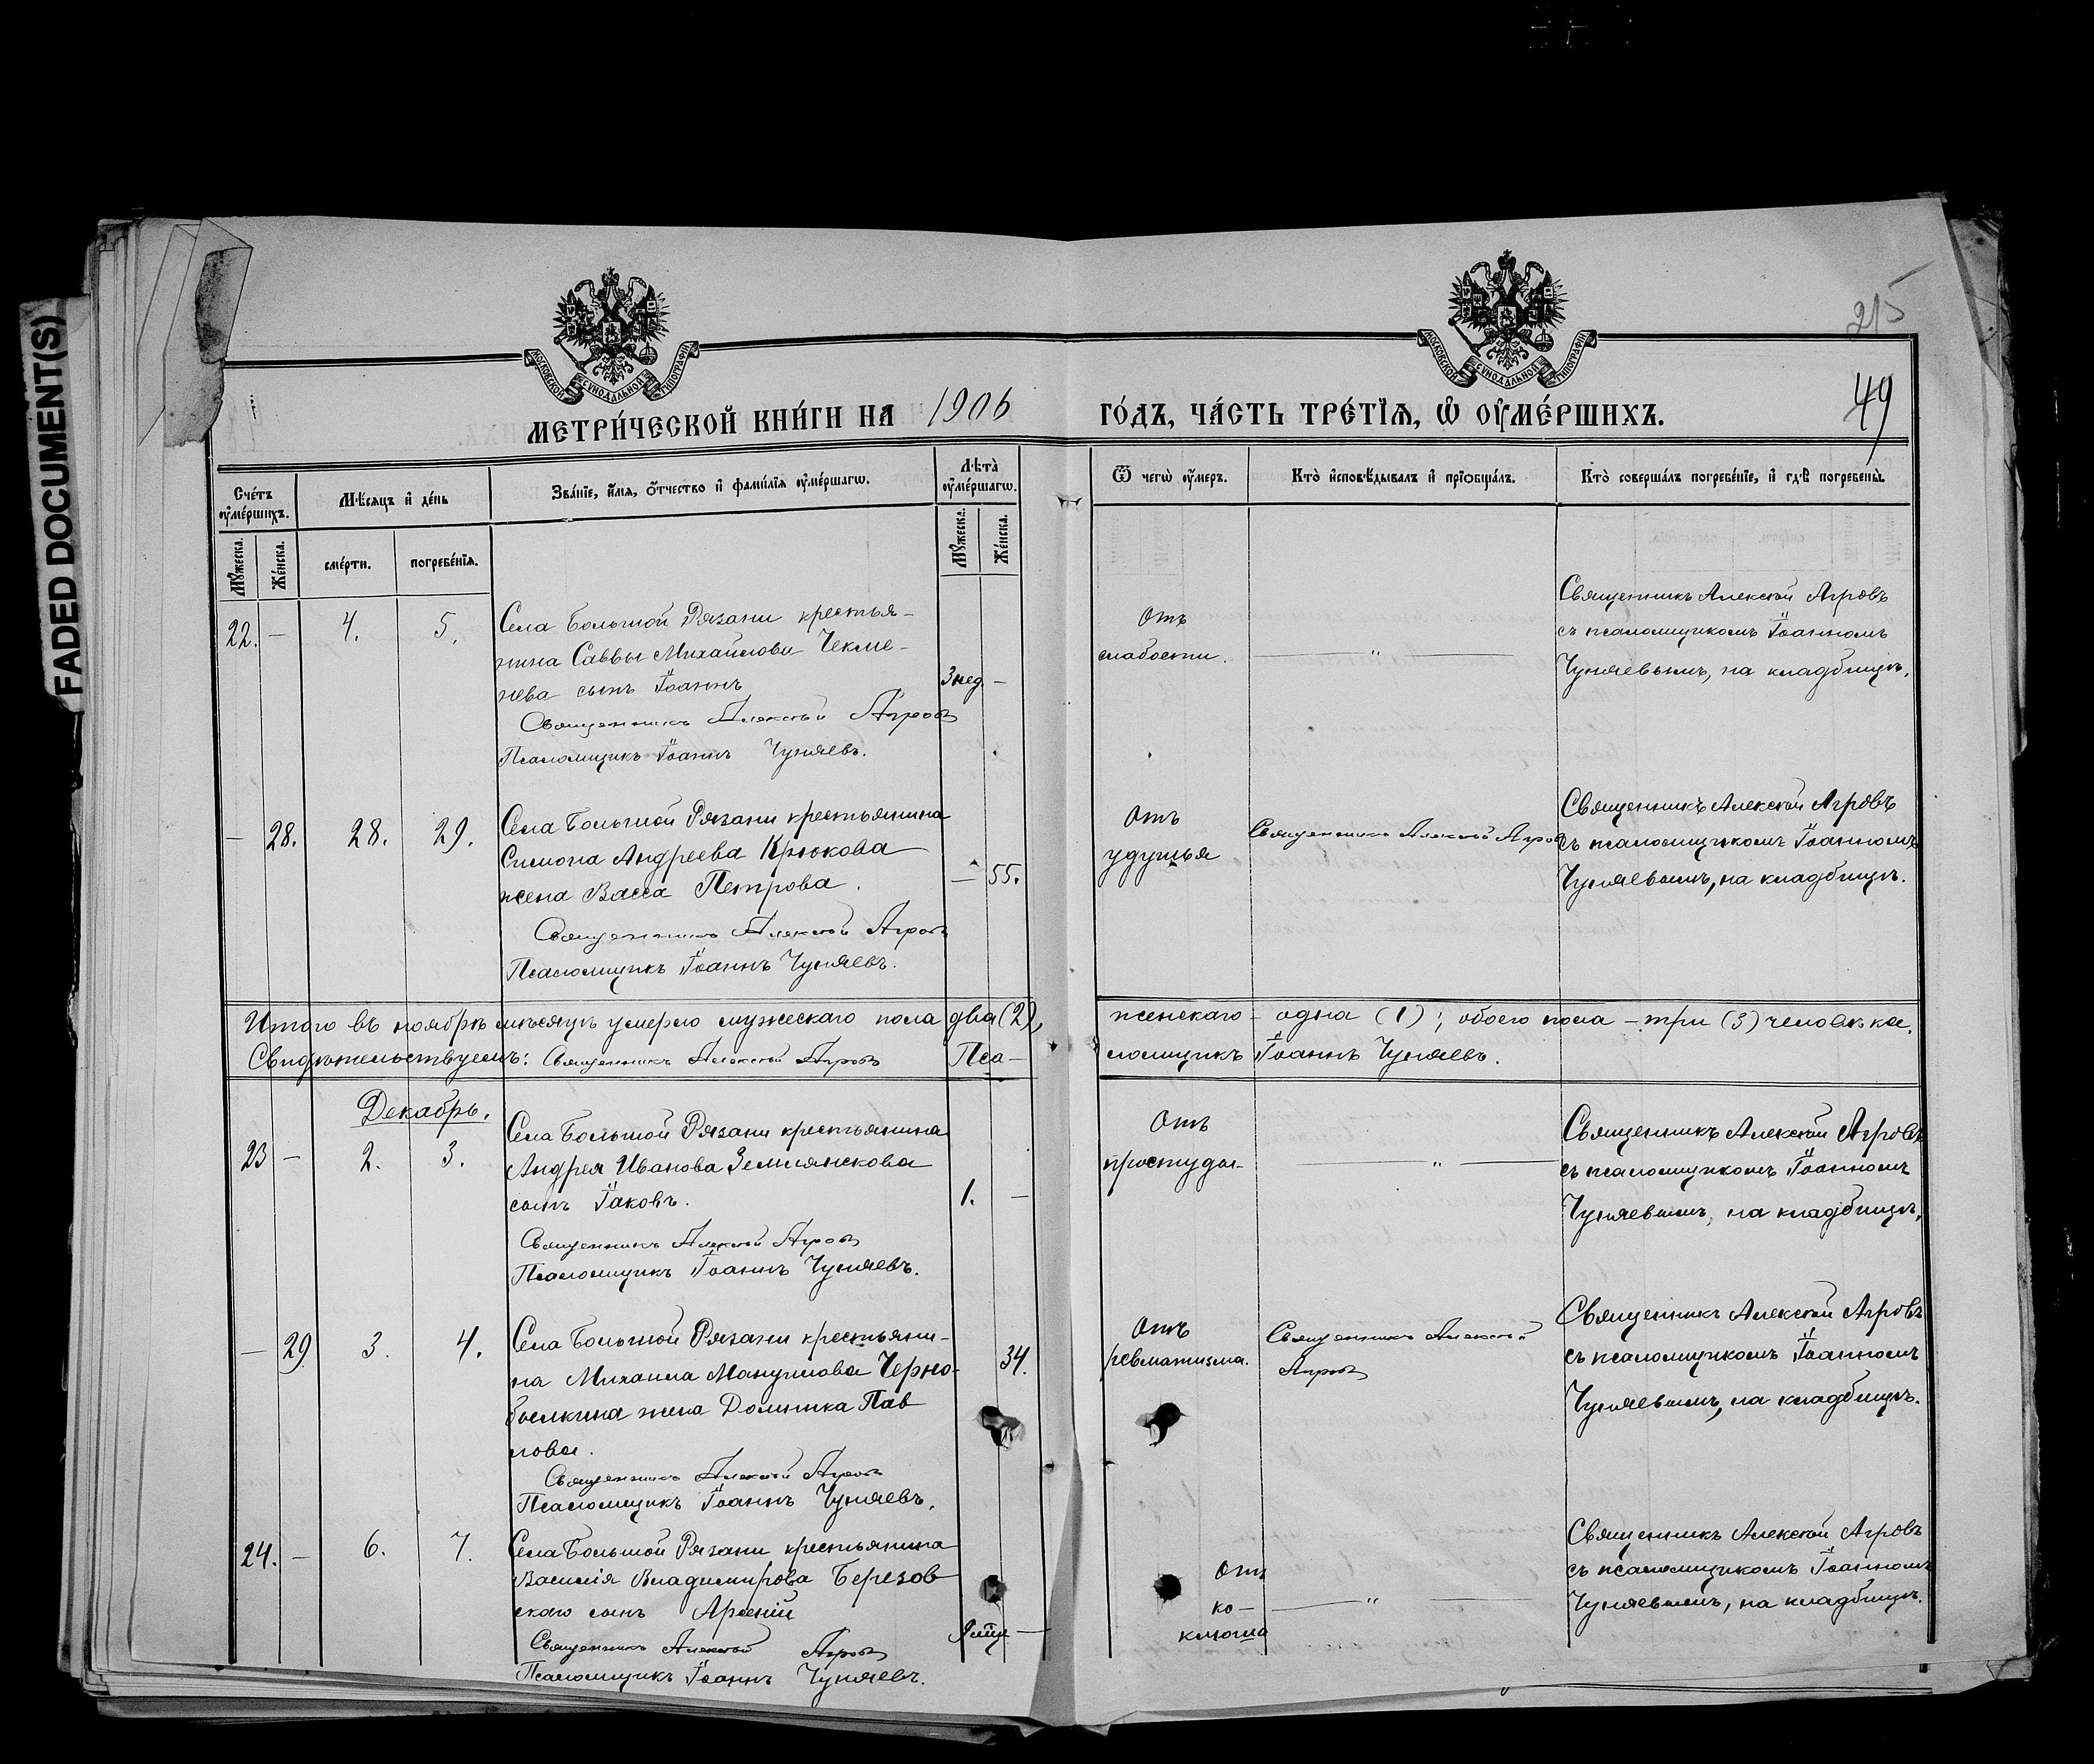 FADED DOCUMENT(S)
215
49
МОСКОВСКОЙ СѴНОДАЛЬНОЙ ТИПОГРАФІИ
МОСКОВСКОЙ СѴНОДАЛЬНОЙ ТИПОГРАФІИ
МЕТРИ́ЧЕСКОЙ КНИ́ГИ НА 1906 ГО́ДЪ, ЧА́СТЬ ТРЕ́ТІѦ, Ѡ҆ ОУ҆МЕ́РШИХЪ.
Сче́тъ оу҆ме́ршихъ.
Мѣ́сяцъ и҆ де́нь
Зва́нїе, и҆́мѧ, ѻ҆́тчество и҆ фами́лїѧ оу҆ме́ршагѡ.
Лѣ́та̀ оу҆ме́ршагѡ.
Ѿ чегѡ̀ оу҆́меръ.
Кто̀ и҆сповѣ́дывалъ и҆ прїѡбща́лъ.
Кто̀ соверша́лъ погребе́нїе, и҆ гдѣ̀ погребены̀.
Мꙋ́жеска.
Же́нска.
сме́рти.
погребе́нїѧ.
Мꙋ́жеска.
Же́нска.
22. — 4. 5.
Села Большой Рязани крестья-
нина Саввы Михайлова Чекме-
нева сынъ Іоаннъ
3 нед. —
Священникъ Алексѣй Агровъ
Псаломщикъ Іоаннъ Чуняевъ.
Отъ
слабости.
— " —
Священникъ Алексѣй Агровъ
съ псаломщикомъ Іоанномъ
Чуняевымъ, на кладбищѣ.
— 28. 28. 29.
Села Большой Рязани крестьянина
Симона Андреева Крюкова
жена Васса Петрова.
— 55.
Священникъ Алексѣй Агровъ
Псаломщикъ Іоаннъ Чуняевъ.
Отъ
удушья
Священникъ Алексѣй Агровъ
Священникъ Алексѣй Агровъ
съ псаломщикомъ Іоанномъ
Чуняевымъ, на кладбищѣ.
Итого въ ноябрѣ мѣсяцѣ умерло мужескаго пола два (2), женскаго — одна (1); обоего пола — три (3) человѣка.
Свидѣтельствуемъ: Священникъ Алексѣй Агровъ Пса-ломщикъ Іоаннъ Чуняевъ.
Декабрь.
23 — 2. 3.
Села Большой Рязани крестьянина
Андрея Иванова Землянскова
сынъ Іаковъ.
1. —
Священникъ Алексѣй Агровъ
Псаломщикъ Іоаннъ Чуняевъ.
Отъ
простуды.
— " —
Священникъ Алексѣй Агровъ
съ псаломщикомъ Іоанномъ
Чуняевымъ, на кладбищѣ.
— 29 3. 4.
Села Большой Рязани крестьяни-
на Михаила Мануилова Черно-
былкина жена Домника Пав
лова.
34.
Священникъ Алексѣй Агровъ
Псаломщикъ Іоаннъ Чуняевъ.
Отъ
ревматизма.
Священникъ Алексѣй
Агровъ
Священникъ Алексѣй Агровъ
съ псаломщикомъ Іоанномъ
Чуняевымъ, на кладбищѣ.
24. — 6. 7.
Села Большой Рязани крестьянина
Василія Владимирова Березов
скаго сынъ Арсеній
—
Священникъ Алексѣй Агровъ
Псаломщикъ Іоаннъ Чуняевъ.
Отъ
ко-
клюша
— " —
Священникъ Алексѣй Агровъ
съ псаломщикомъ Іоанномъ
Чуняевымъ, на кладбищѣ.